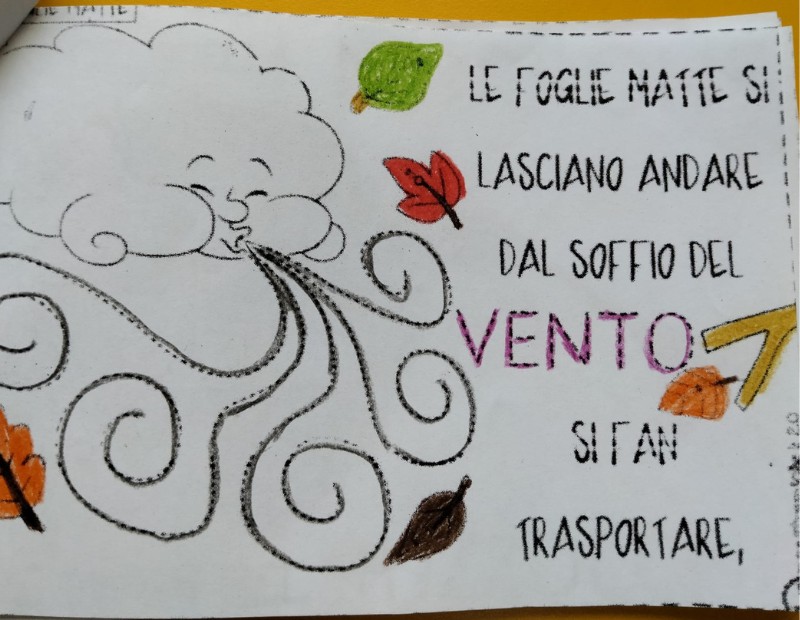 FOGLIE MATTE
LE FOGLIE MATTE SI
LASCIANO ANDARE
DAL SOFFIO DEL
VENTO
SI FAN
TRASPORTARE,